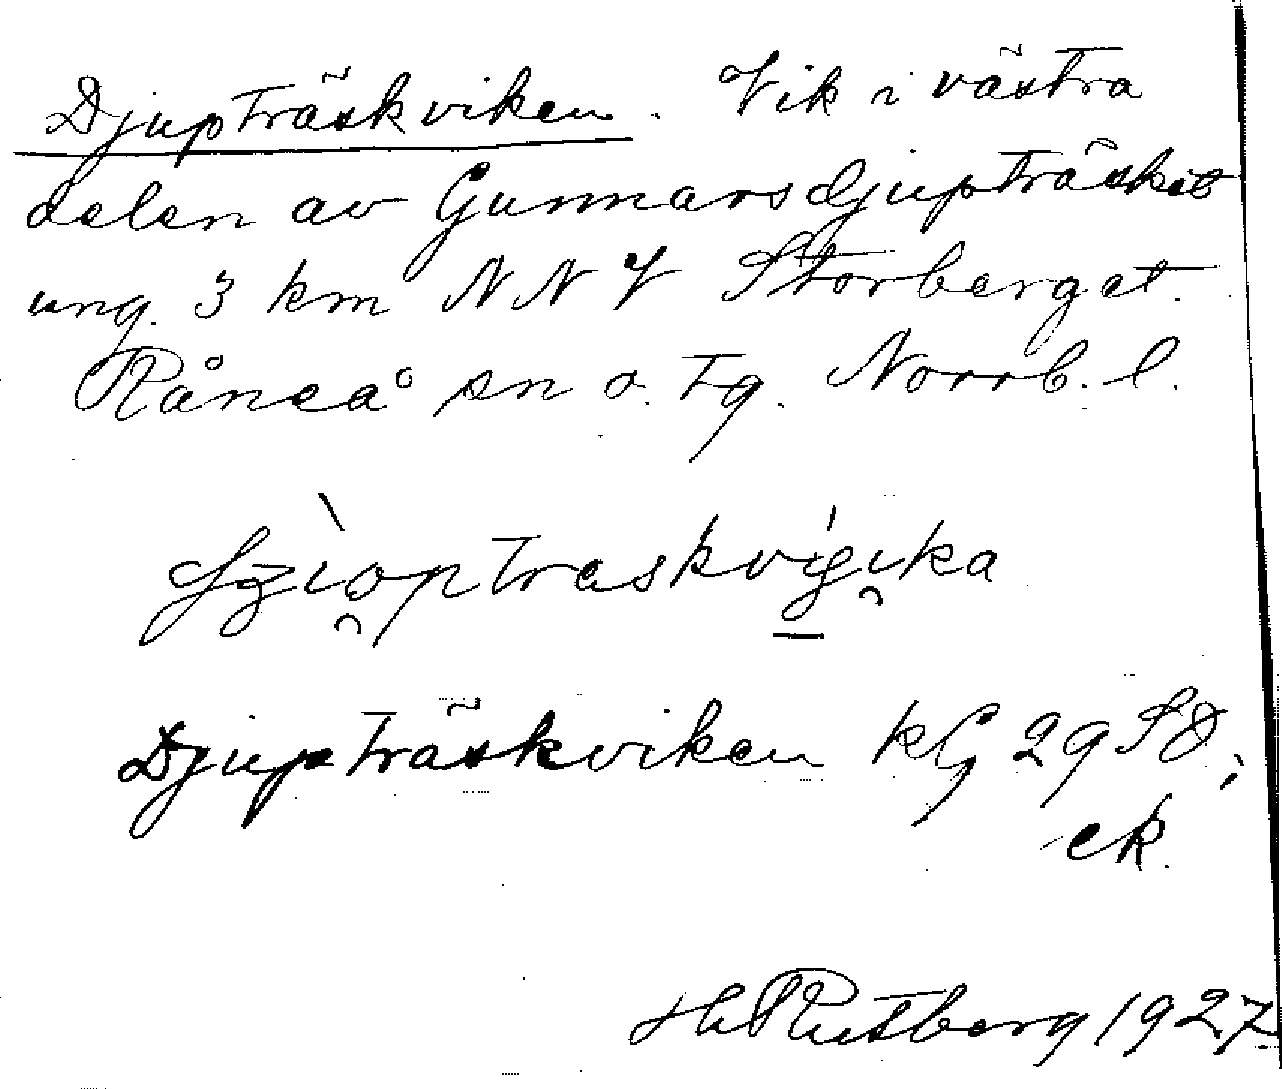 Djupträskviken. Vik i västra
delen av Gunnarsdjupträsket
ung. 3 km NNV Storberget.
Råneå sn o. tg. Norrb. l.
Djupträskviken kG 29 SO;
ek.
H Rutberg 1927